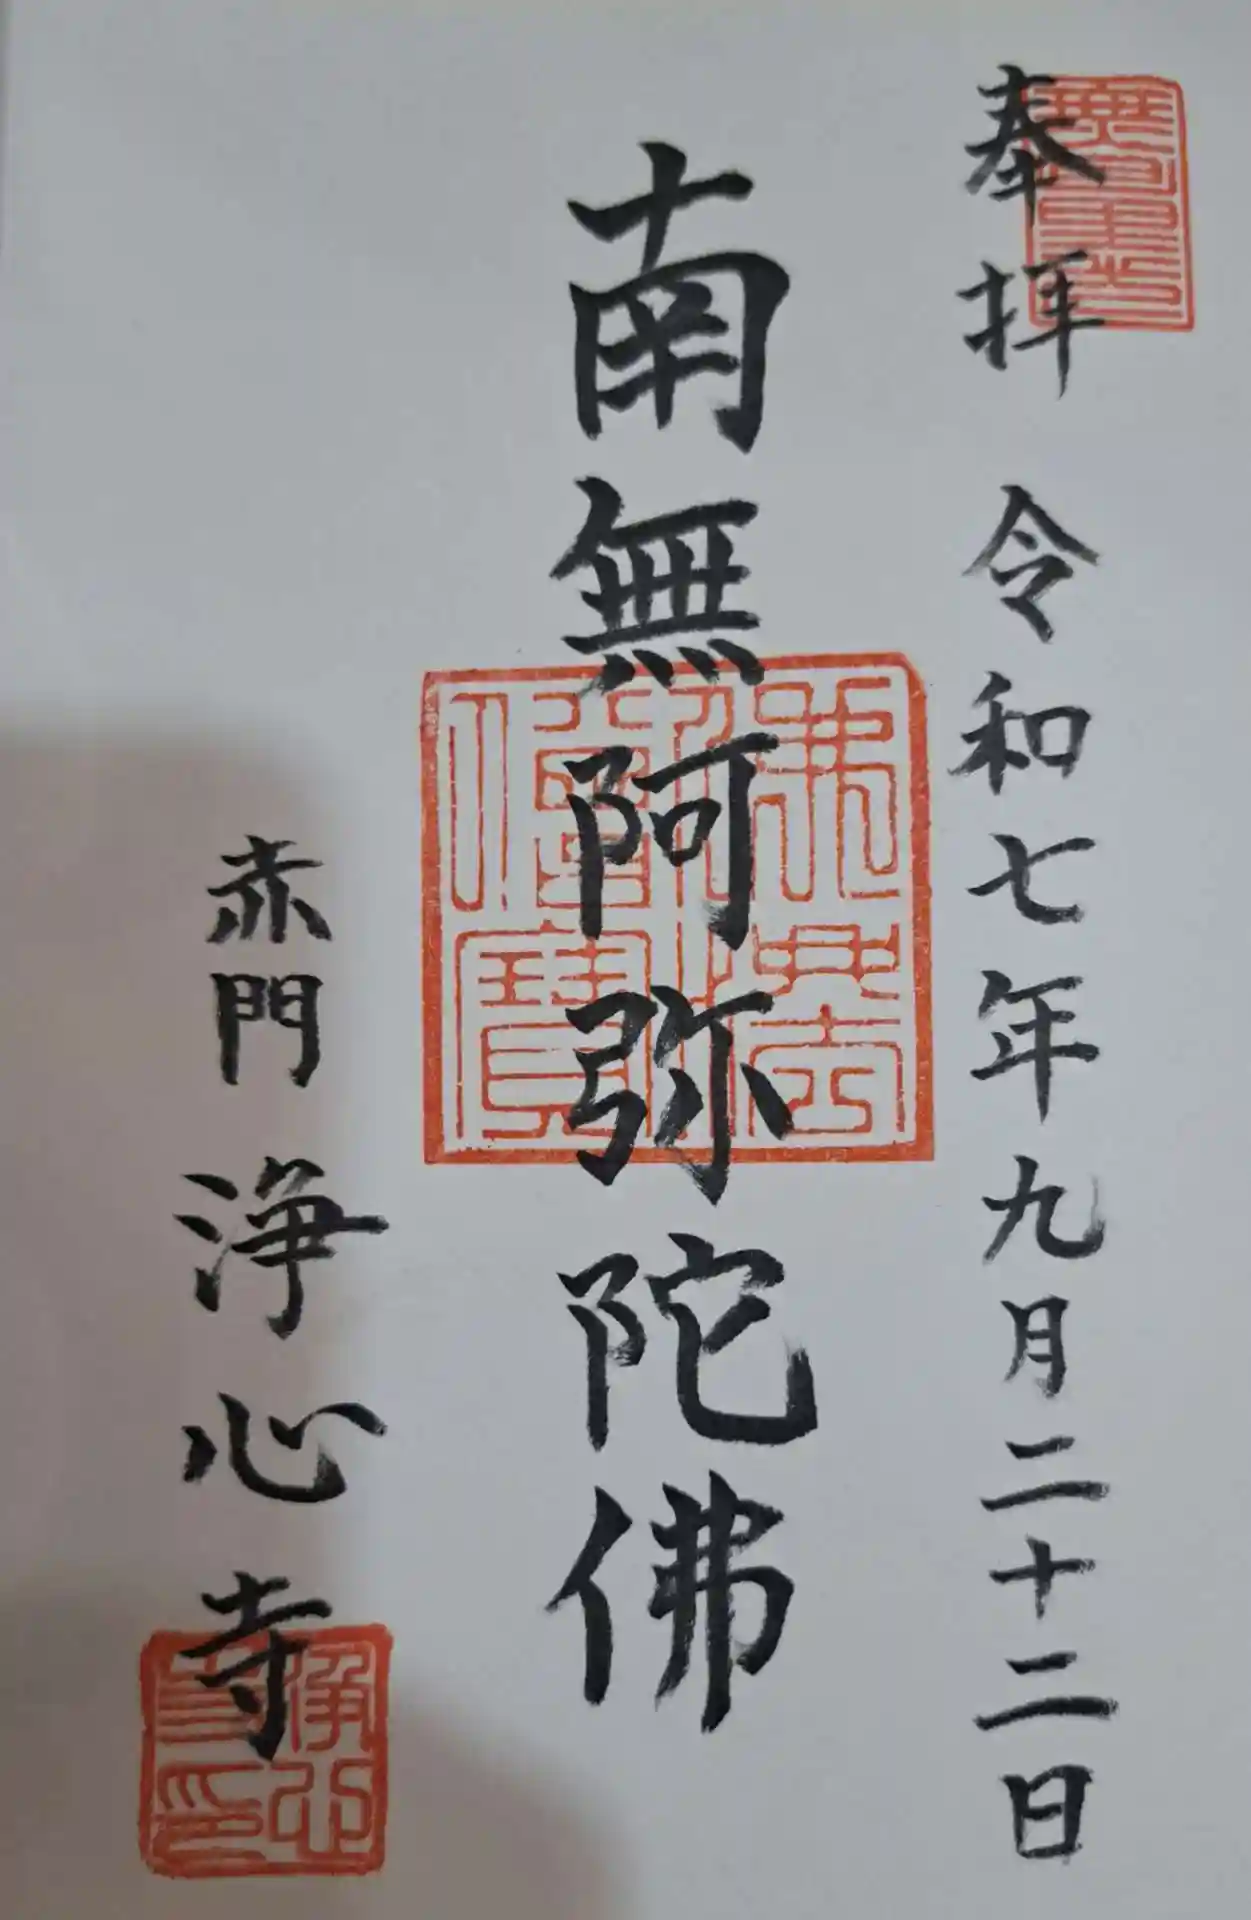 奉拝 令和七年九月二十二日
南無阿弥陀佛
佛法僧寶
赤門 浄心寺